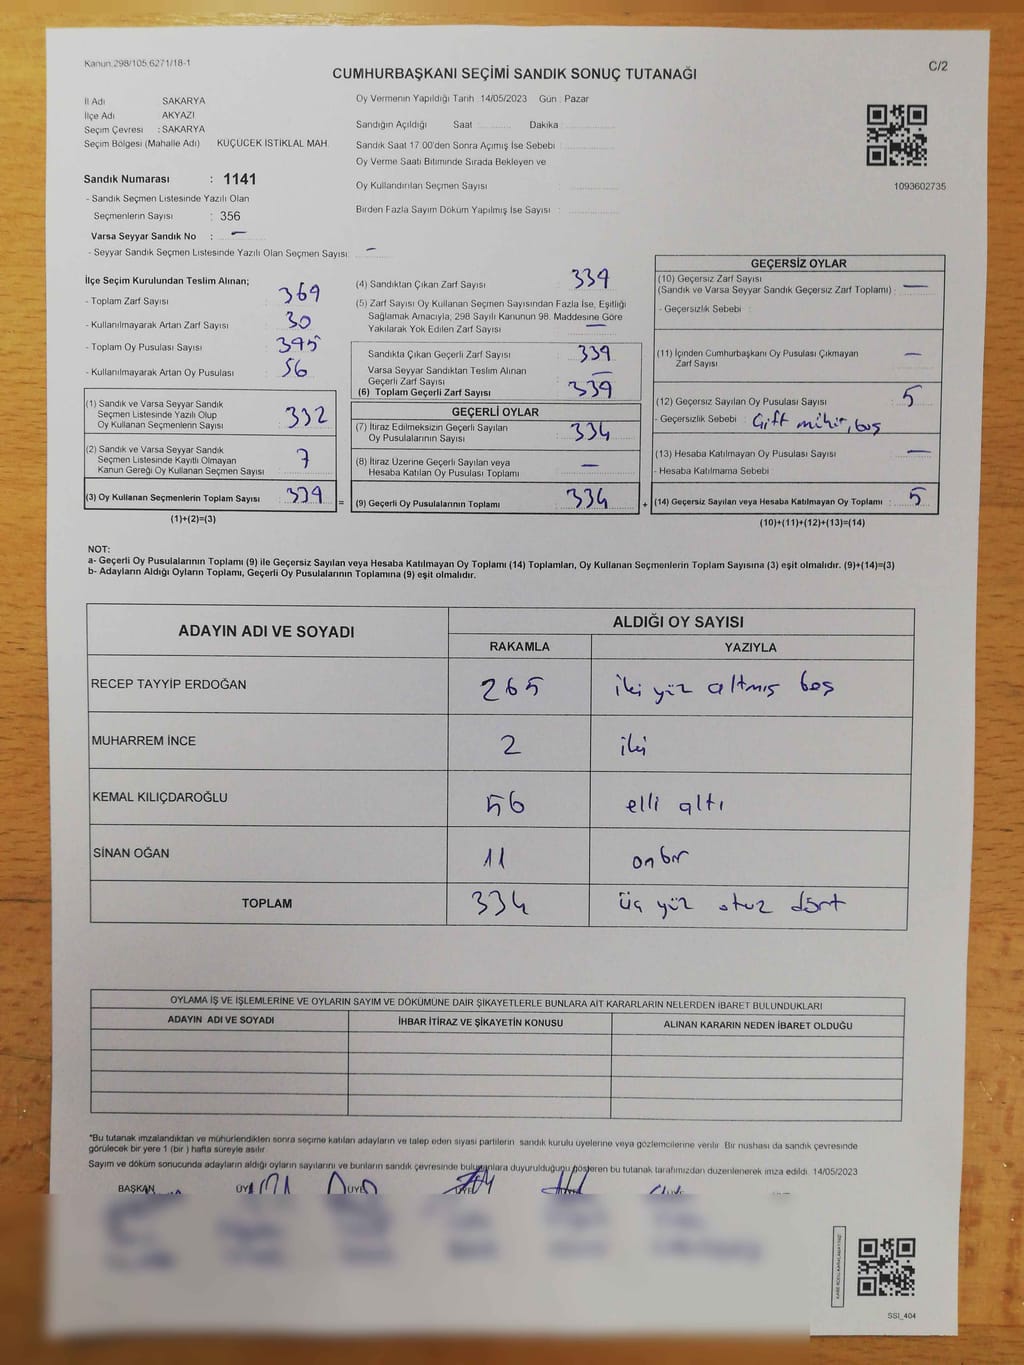 Kanun.298/105,6271/18-1
CUMHURBAŞKANI SEÇİMİ SANDIK SONUÇ TUTANAĞI
C/2
İl Adı SAKARYA
İlçe Adı AKYAZI
Seçim Çevresi : SAKARYA
Seçim Bölgesi (Mahalle Adı) KÜÇÜCEK İSTİKLAL MAH.
Sandık Numarası : 1141
- Sandık Seçmen Listesinde Yazılı Olan
Seçmenlerin Sayısı : 356
Varsa Seyyar Sandık No : –
- Seyyar Sandık Seçmen Listesinde Yazılı Olan Seçmen Sayısı: –
Oy Vermenin Yapıldığı Tarih 14/05/2023 Gün : Pazar
Sandığın Açıldığı Saat ............ Dakika : ............
Sandık Saat 17.00'den Sonra Açımış İse Sebebi : ............
Oy Verme Saati Bitiminde Sırada Bekleyen ve
Oy Kullandırılan Seçmen Sayısı : ............
Birden Fazla Sayım Döküm Yapılmış İse Sayısı : ............
1093602735
İlçe Seçim Kurulundan Teslim Alınan;
- Toplam Zarf Sayısı : 369
- Kullanılmayarak Artan Zarf Sayısı : 30
- Toplam Oy Pusulası Sayısı : 395
- Kullanılmayarak Artan Oy Pusulası : 56
(1) Sandık ve Varsa Seyyar Sandık
Seçmen Listesinde Yazılı Olup
Oy Kullanan Seçmenlerin Sayısı : 332
(2) Sandık ve Varsa Seyyar Sandık
Seçmen Listesinde Kayıtlı Olmayan
Kanun Gereği Oy Kullanan Seçmen Sayısı : 7
(3) Oy Kullanan Seçmenlerin Toplam Sayısı : 339
(1)+(2)=(3)
(4) Sandıktan Çıkan Zarf Sayısı : 339
(5) Zarf Sayısı Oy Kullanan Seçmen Sayısından Fazla İse, Eşitliği
Sağlamak Amacıyla; 298 Sayılı Kanunun 98. Maddesine Göre
Yakılarak Yok Edilen Zarf Sayısı : –
Sandıkta Çıkan Geçerli Zarf Sayısı : 339
Varsa Seyyar Sandıktan Teslim Alınan
Geçerli Zarf Sayısı : –
(6) Toplam Geçerli Zarf Sayısı : 339
GEÇERLİ OYLAR
(7) İtiraz Edilmeksizin Geçerli Sayılan
Oy Pusulalarının Sayısı : 334
(8) İtiraz Üzerine Geçerli Sayılan veya
Hesaba Katılan Oy Pusulası Toplamı : –
= (9) Geçerli Oy Pusulalarının Toplamı : 334 +
GEÇERSİZ OYLAR
(10) Geçersiz Zarf Sayısı
(Sandık ve Varsa Seyyar Sandık Geçersiz Zarf Toplamı) : –
- Geçersizlik Sebebi :
(11) İçinden Cumhurbaşkanı Oy Pusulası Çıkmayan
Zarf Sayısı : –
(12) Geçersiz Sayılan Oy Pusulası Sayısı : 5
- Geçersizlik Sebebi : Çift mühür, boş
(13) Hesaba Katılmayan Oy Pusulası Sayısı : –
- Hesaba Katılmama Sebebi :
(14) Geçersiz Sayılan veya Hesaba Katılmayan Oy Toplamı : 5
(10)+(11)+(12)+(13)=(14)
NOT:
a- Geçerli Oy Pusulalarının Toplamı (9) ile Geçersiz Sayılan veya Hesaba Katılmayan Oy Toplamı (14) Toplamları, Oy Kullanan Seçmenlerin Toplam Sayısına (3) eşit olmalıdır. (9)+(14)=(3)
b- Adayların Aldığı Oyların Toplamı, Geçerli Oy Pusulalarının Toplamına (9) eşit olmalıdır.
ADAYIN ADI VE SOYADI ALDIĞI OY SAYISI
RAKAMLA YAZIYLA
RECEP TAYYİP ERDOĞAN 265 iki yüz altmış beş
MUHARREM İNCE 2 iki
KEMAL KILIÇDAROĞLU 56 elli altı
SİNAN OĞAN 11 onbir
TOPLAM 334 üç yüz otuz dört
OYLAMA İŞ VE İŞLEMLERİNE VE OYLARIN SAYIM VE DÖKÜMÜNE DAİR ŞİKAYETLERLE BUNLARA AİT KARARLARIN NELERDEN İBARET BULUNDUKLARI
ADAYIN ADI VE SOYADI İHBAR İTİRAZ VE ŞİKAYETİN KONUSU ALINAN KARARIN NEDEN İBARET OLDUĞU
*Bu tutanak imzalandıktan ve mühürlendikten sonra seçime katılan adayların ve talep eden siyasi partilerin sandık kurulu üyelerine veya gözlemcilerine verilir. Bir nüshası da sandık çevresinde
görülecek bir yere 1 (bir ) hafta süreyle asılır.
Sayım ve döküm sonucunda adayların aldığı oyların sayılarını ve bunların sandık çevresinde bulunanlara duyurulduğunu gösteren bu tutanak tarafımızdan düzenlenerek imza edildi. 14/05/2023
BAŞKAN ÜYE ÜYE ÜYE
SSI_404